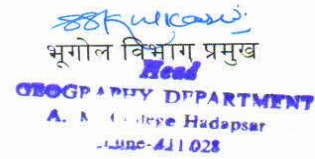 भूगोल विभाग प्रमुख
Head
GEOGRAPHY DEPARTMENT
A. M. College Hadapsar
Pune-411028